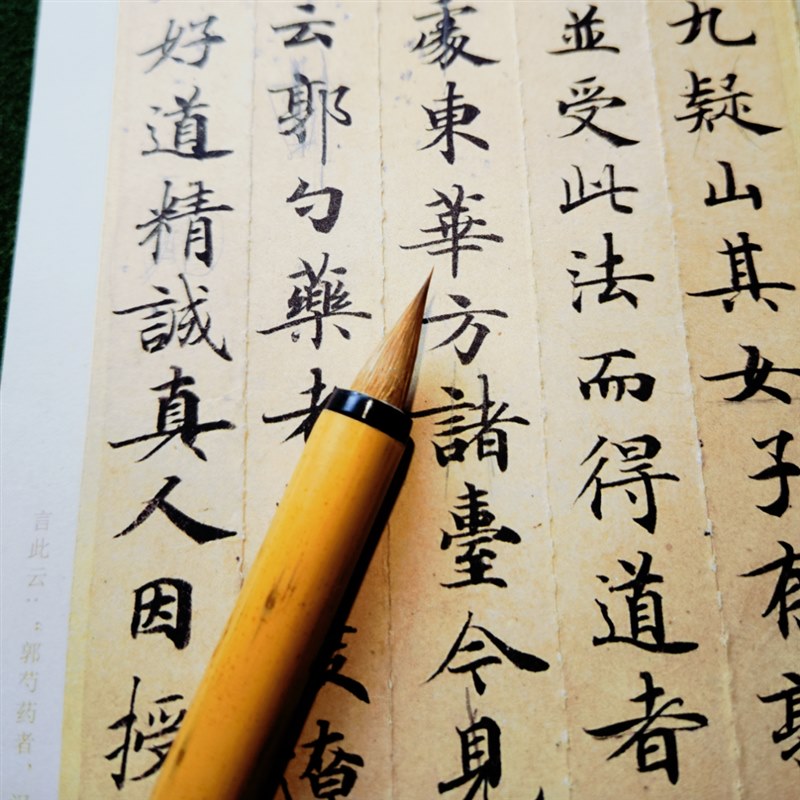 九疑山其女子有
並受此法而得道者
處東華方諸臺今見
云郭勺藥者
好道精誠真人因授
言此云：：郭芍药者，